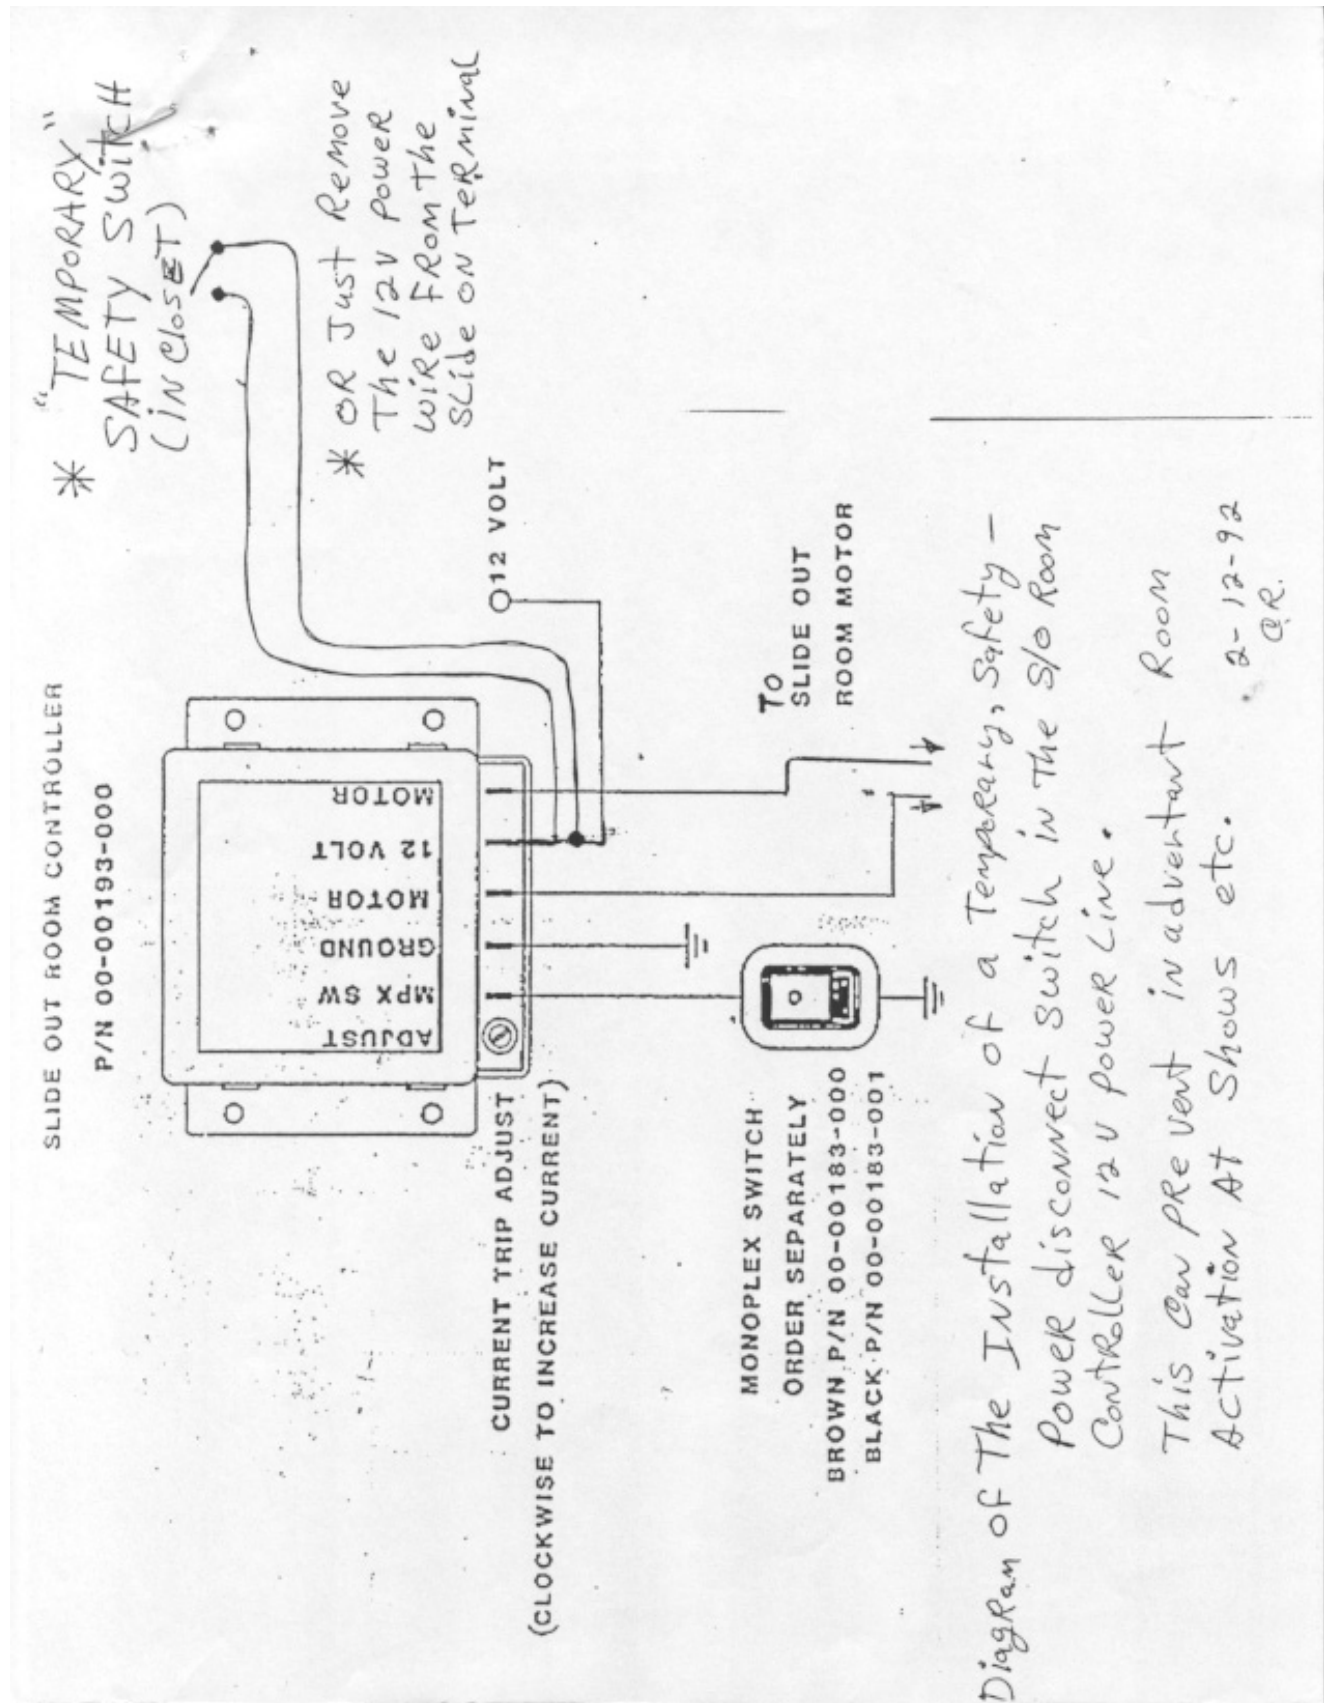 SLIDE OUT ROOM CONTROLLER
P/N 00-00193-000
* "TEMPORARY"
SAFETY SWitCH
(iN CloSET)
* OR Just Remove
The 12V Power
WiRe FRom The
SLide ON TeRMinal
ADJUST
MPX SW
GROUND
MOTOR
12 VOLT
MOTOR
12 VOLT
CURRENT TRIP ADJUST
(CLOCKWISE TO INCREASE CURRENT)
TO
SLIDE OUT
ROOM MOTOR
MONOPLEX SWITCH
ORDER SEPARATELY
BROWN P/N 00-00183-000
BLACK P/N 00-00183-001
DiagRam of The INstallation of a Temporary, Safety-
Power disconnect switch in The S/O Room
ContRolleR 12V Power Line.
This Can PRevent inadvertant Room
Activation At Shows etc. 2-12-92